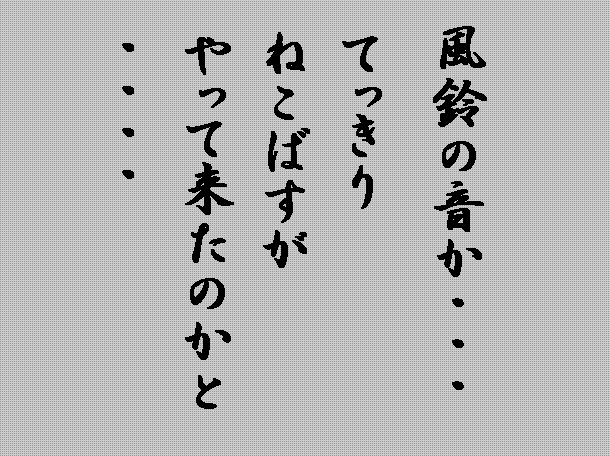 風鈴の音か・・・
てっきり
ねこばすが
やって来たのかと
・・・・